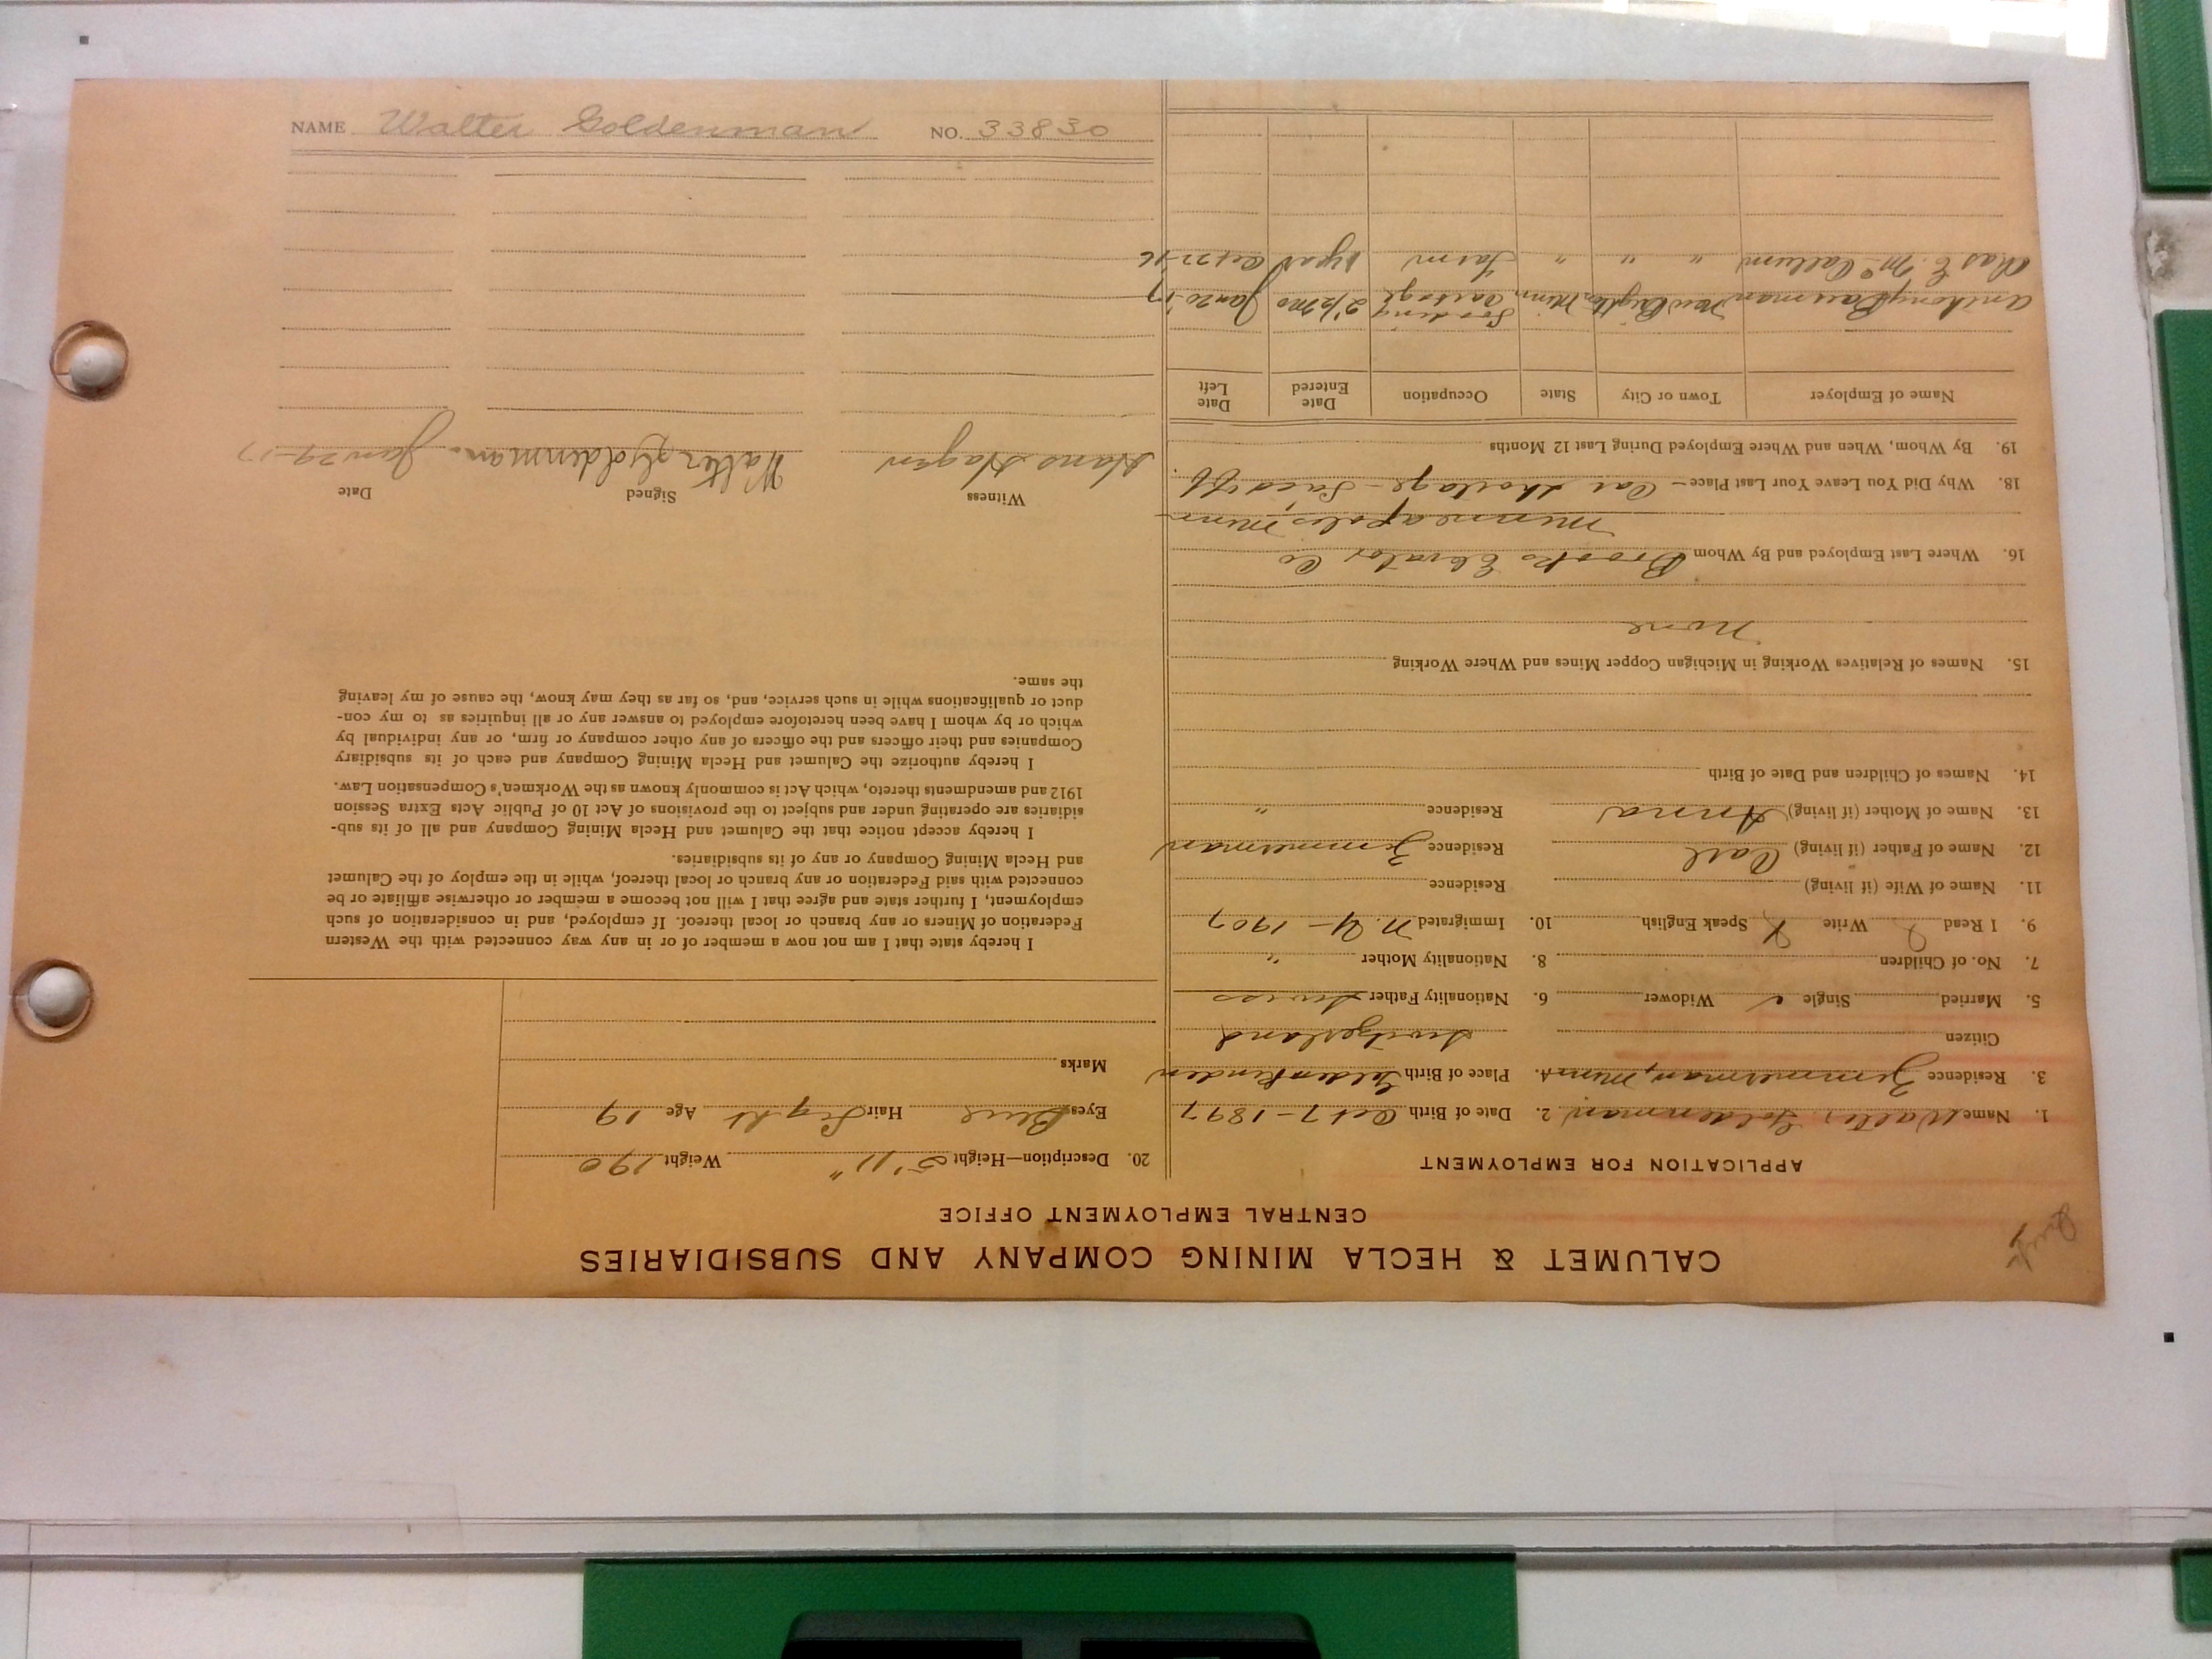 CALUMET & HECLA MINING COMPANY AND SUBSIDIARIES
CENTRAL EMPLOYMENT OFFICE
APPLICATION FOR EMPLOYMENT
1. Name Walter Goldenman 2. Date of Birth Oct 7-1897
3. Residence Zimmerman, Minn 4. Place of Birth
Citizen Switzerland
5. Married Single ✓ Widower 6. Nationality Father Swiss
7. No. of Children 8. Nationality Mother "
9. I Read Write X Speak English 10. Immigrated N.Y - 1907
11. Name of Wife (if living) Residence
12. Name of Father (if living) Carl Residence Zimmerman
13. Name of Mother (if living) Anna Residence "
14. Names of Children and Date of Birth
15. Names of Relatives Working in Michigan Copper Mines and Where Working
None
16. Where Last Employed and By Whom Brooks Elevator Co
Minneapolis, Minn
18. Why Did You Leave Your Last Place - Car shortage -
19. By Whom, When and Where Employed During Last 12 Months
Name of Employer Town or City State Occupation Date Entered Date Left
Anthony Bauman New Brighton Minn. 2 1/2 mo Jan 20-17
Chas E. McCallum " " " farm 1 year Oct 22-16
20. Description—Height 5' 11" Weight 190
Eyes Blue Hair Light Age 19
Marks
I hereby state that I am not now a member of or in any way connected with the Western
Federation of Miners or any branch or local thereof. If employed, and in consideration of such
employment, I further state and agree that I will not become a member or otherwise affiliate or be
connected with said Federation or any branch or local thereof, while in the employ of the Calumet
and Hecla Mining Company or any of its subsidiaries.
I hereby accept notice that the Calumet and Hecla Mining Company and all of its sub-
sidiaries are operating under and subject to the provisions of Act 10 of Public Acts Extra Session
1912 and amendments thereto, which Act is commonly known as the Workmen's Compensation Law.
I hereby authorize the Calumet and Hecla Mining Company and each of its subsidiary
Companies and their officers and the officers of any other company or firm, or any individual by
which or by whom I have been heretofore employed to answer any or all inquiries as to my con-
duct or qualifications while in such service, and, so far as they may know, the cause of my leaving
the same.
Witness Signed Date
Hans Hagen Walter Goldenman. Jan 29-17
NAME Walter Goldenman NO. 33830